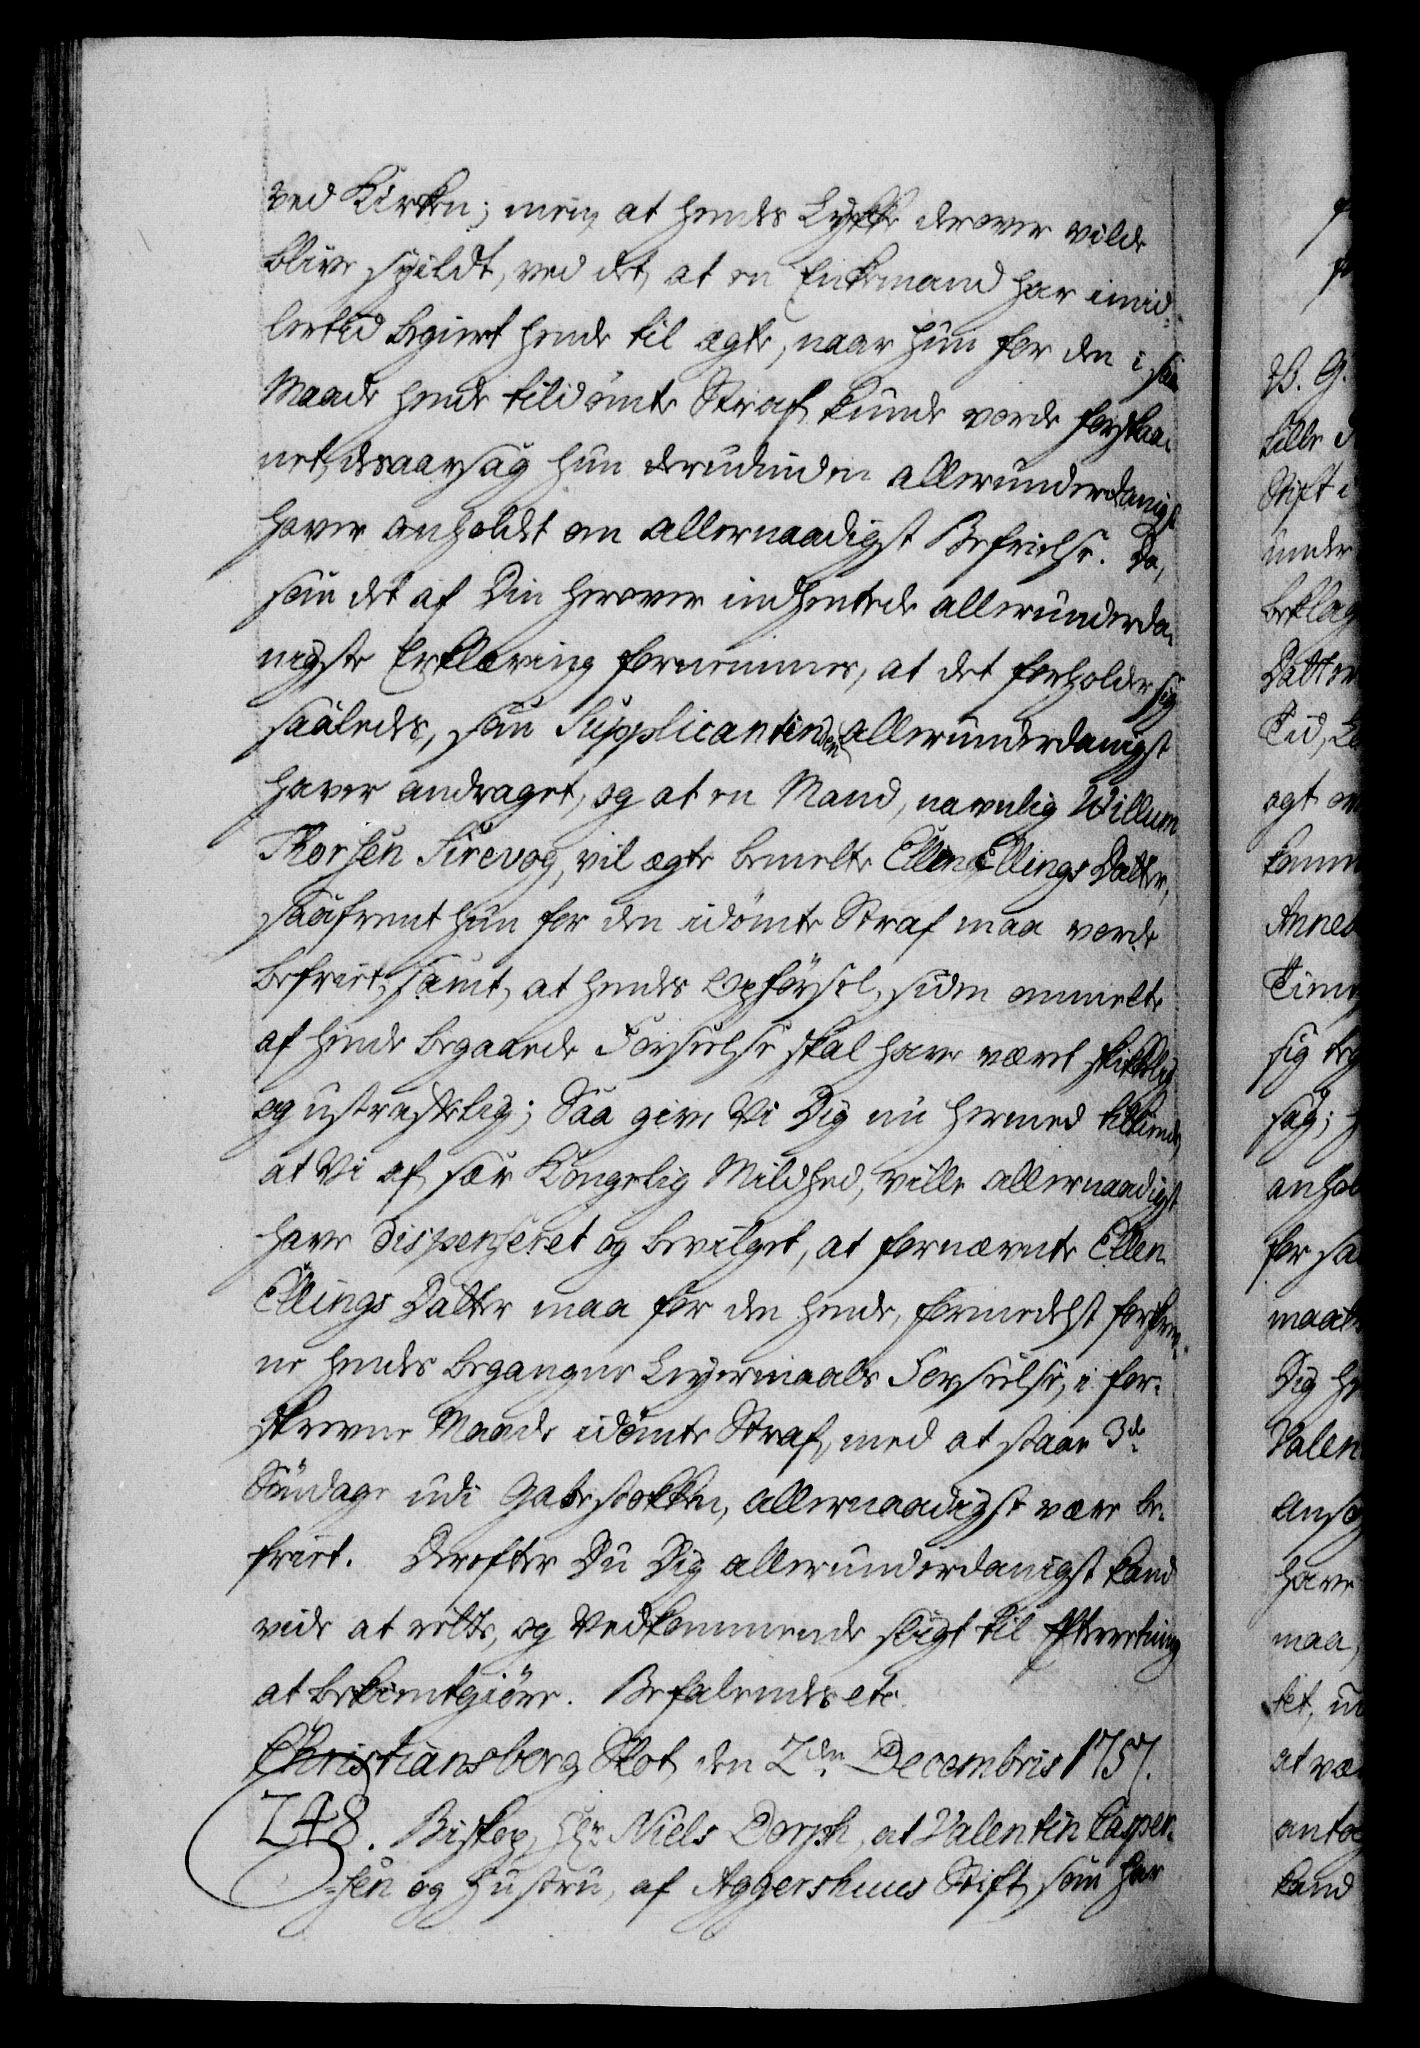 ved Kirken; men at hendes Lykke derover vilde
blive spildt, ved det, at en Enkemand har imid-
lertid begiert hende til ægte, naar hun for den i saa
Maade hende tildömte Straf kunde vorde forskaa-
net, desaarsag hun derudinden allerunderdanigst
haver anholdt om allernaadigst Befrielse. Da,
som det af Din herover indhentede allerunderda-
nigste Erklæring fornemmes, at det forholder sig
saaledes, som Supplicantinden allerunderdanigst
haver andraget, og at en Mand, navnlig Willum
Thorsen Sirevog, vil ægte bemelte Ellen Ellings Datter,
saafremt hun for den idömte Straf maa vorde
befriet, samt, at hendes Opförsel, siden ommelte
af hende begaaede Forseelse skal have været skikkelig
og ustraffelig; Saa give Vi Dig nu hermed tilkiende,
at Vi af sær Kongelig Mildhed, ville allernaadigst
have dispenseret og bevilget, at fornævnte Ellen
Ellings Datter maa for den hende, formedelst forskrev-
ne hendes begangne Leyermaals Forseelse, i for-
skrevne Maade idömte Straf, med at staae 3de
Söndage udi Gabestokken, allernaadigst være be-
friet. Derefter Du Dig allerunderdanigst kand
vide at rette, og Vedkommende sligt til Efterretning
at bekientgiöre. Befalendes etc
Christiansborg Slot den 2den Decembris 1757.
248. Biskop, Hr Niels Dorph, at Valentin Casper-
sen og Hustru, af Aggershuus Stift, som har